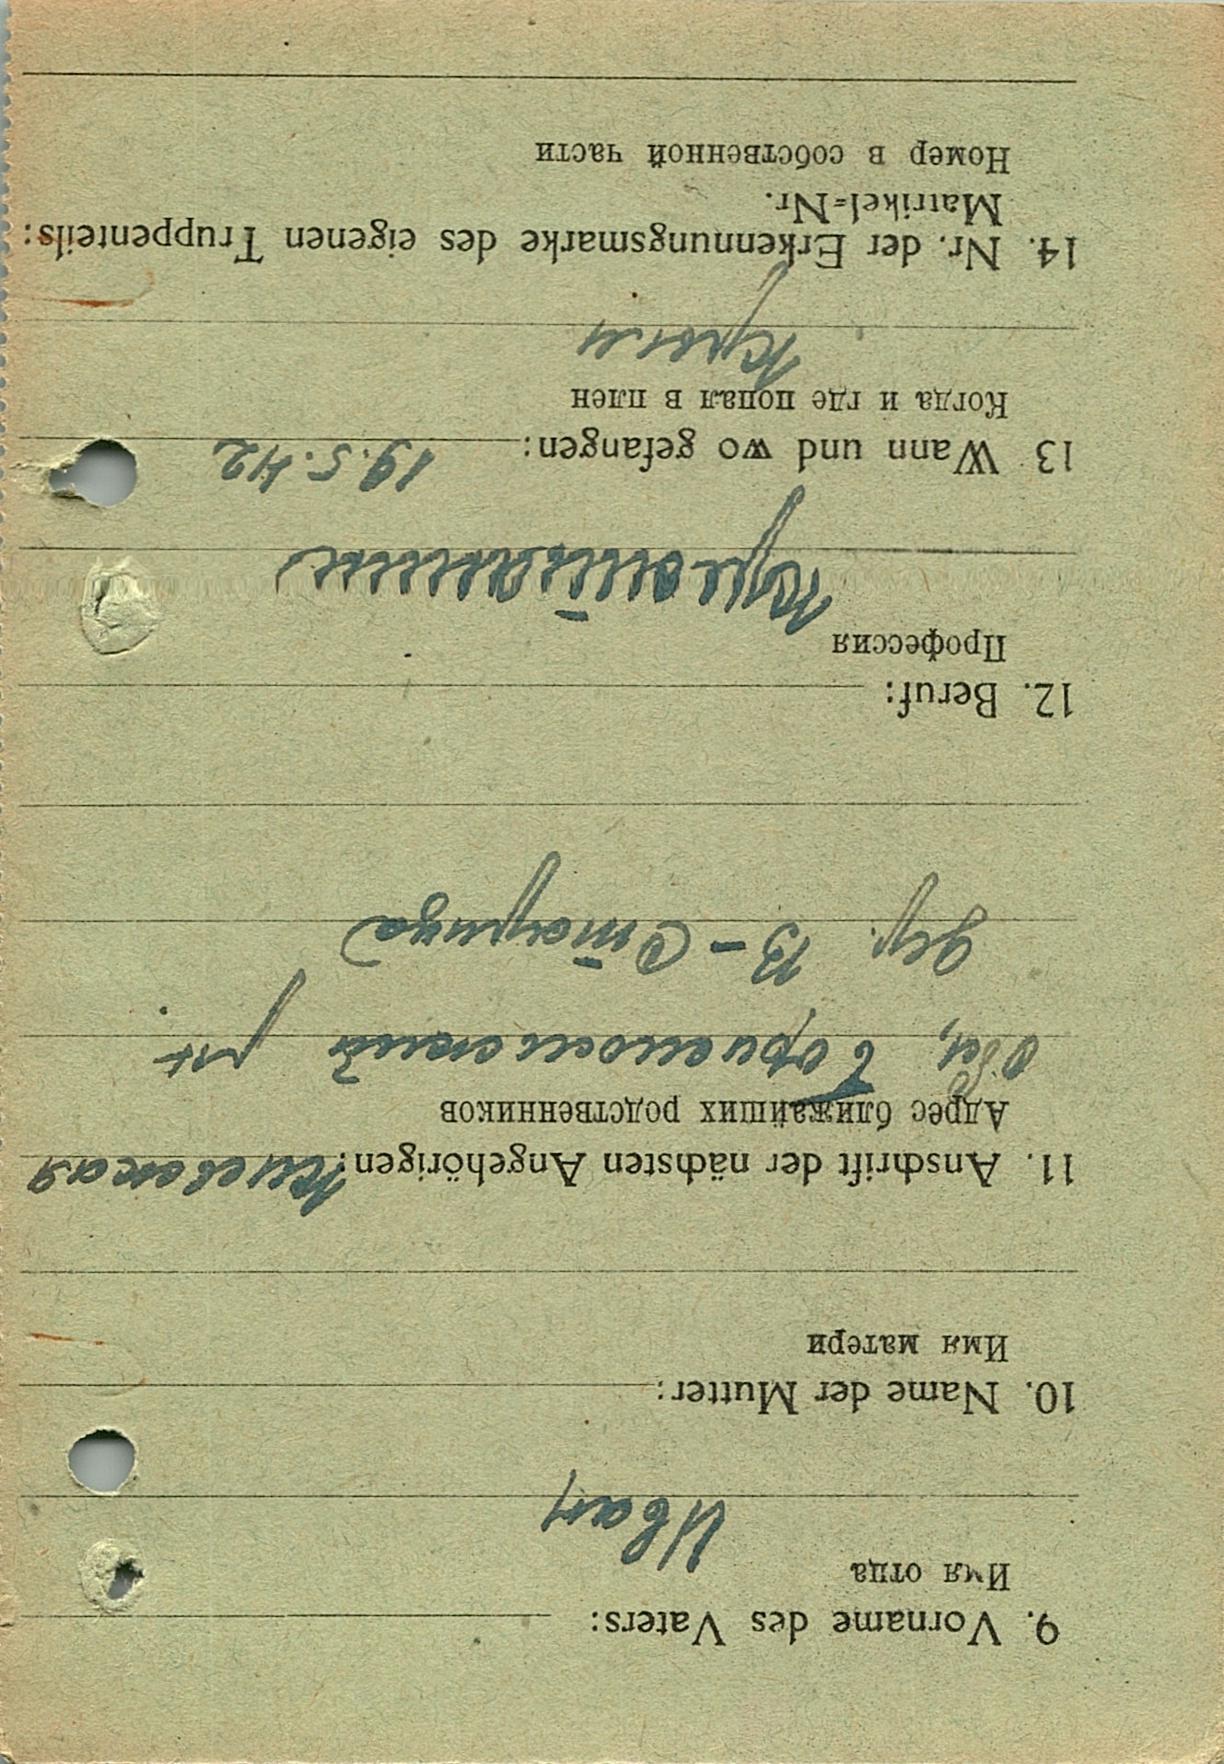 9. Vorname des Vaters:
Имя отца
Иван
10. Name der Mutter:
Имя матери
11. Anschrift der nächsten Angehörigen: Киевская
Адрес ближайших родственников
обл,
дер. В-Старица
12. Beruf:
Профессия
13 Wann und wo gefangen: 19.5.42
Когда и где попал в плен
Крым
14. Nr. der Erkennungsmarke des eigenen Truppenteils:
Matrikel=Nr.
Номер в собственной части